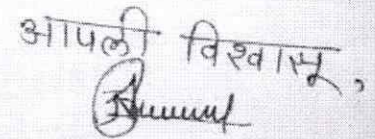 आपली विश्वासू,